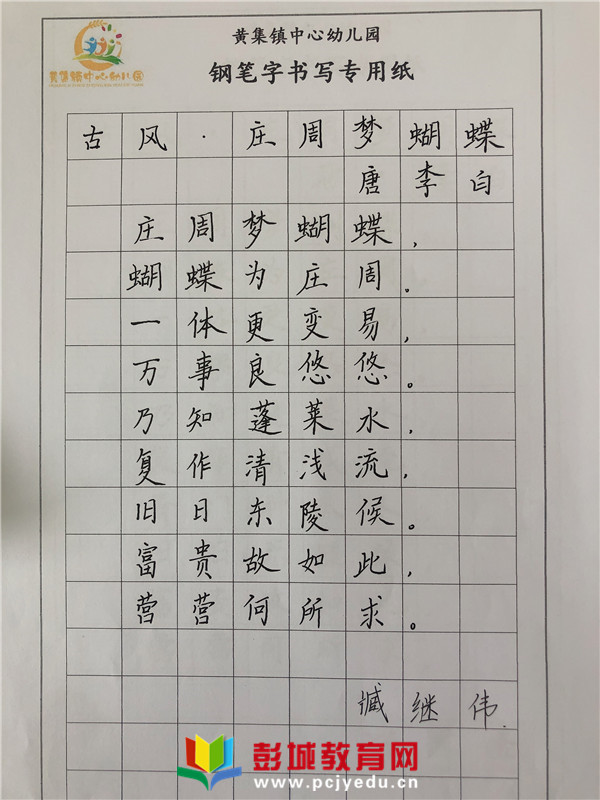 黄集镇中心幼儿园
黄集镇中心幼儿园
钢笔字书写专用纸
古风·庄周梦蝴蝶
唐李白
庄周梦蝴蝶，
蝴蝶为庄周。
一体更变易，
万事良悠悠。
乃知蓬莱水，
复作清浅流，
旧日东陵候。
富贵故如此，
营营何所求。
臧继伟.
彭城教育网
www.pcjyedu.cn